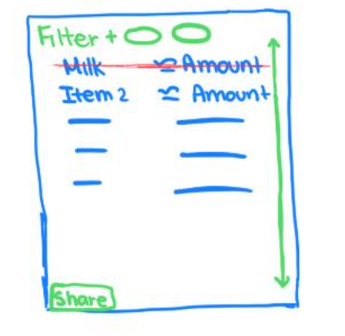 Filter +
Milk ≈ Amount
Item 2 ≈ Amount
Share